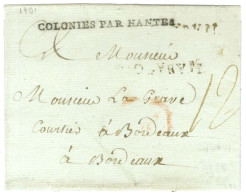 1791
COLONIES PAR NANTES
Monsieur
Monsieur La Grave
Courtier à Bordeaux
à Bordeaux
12